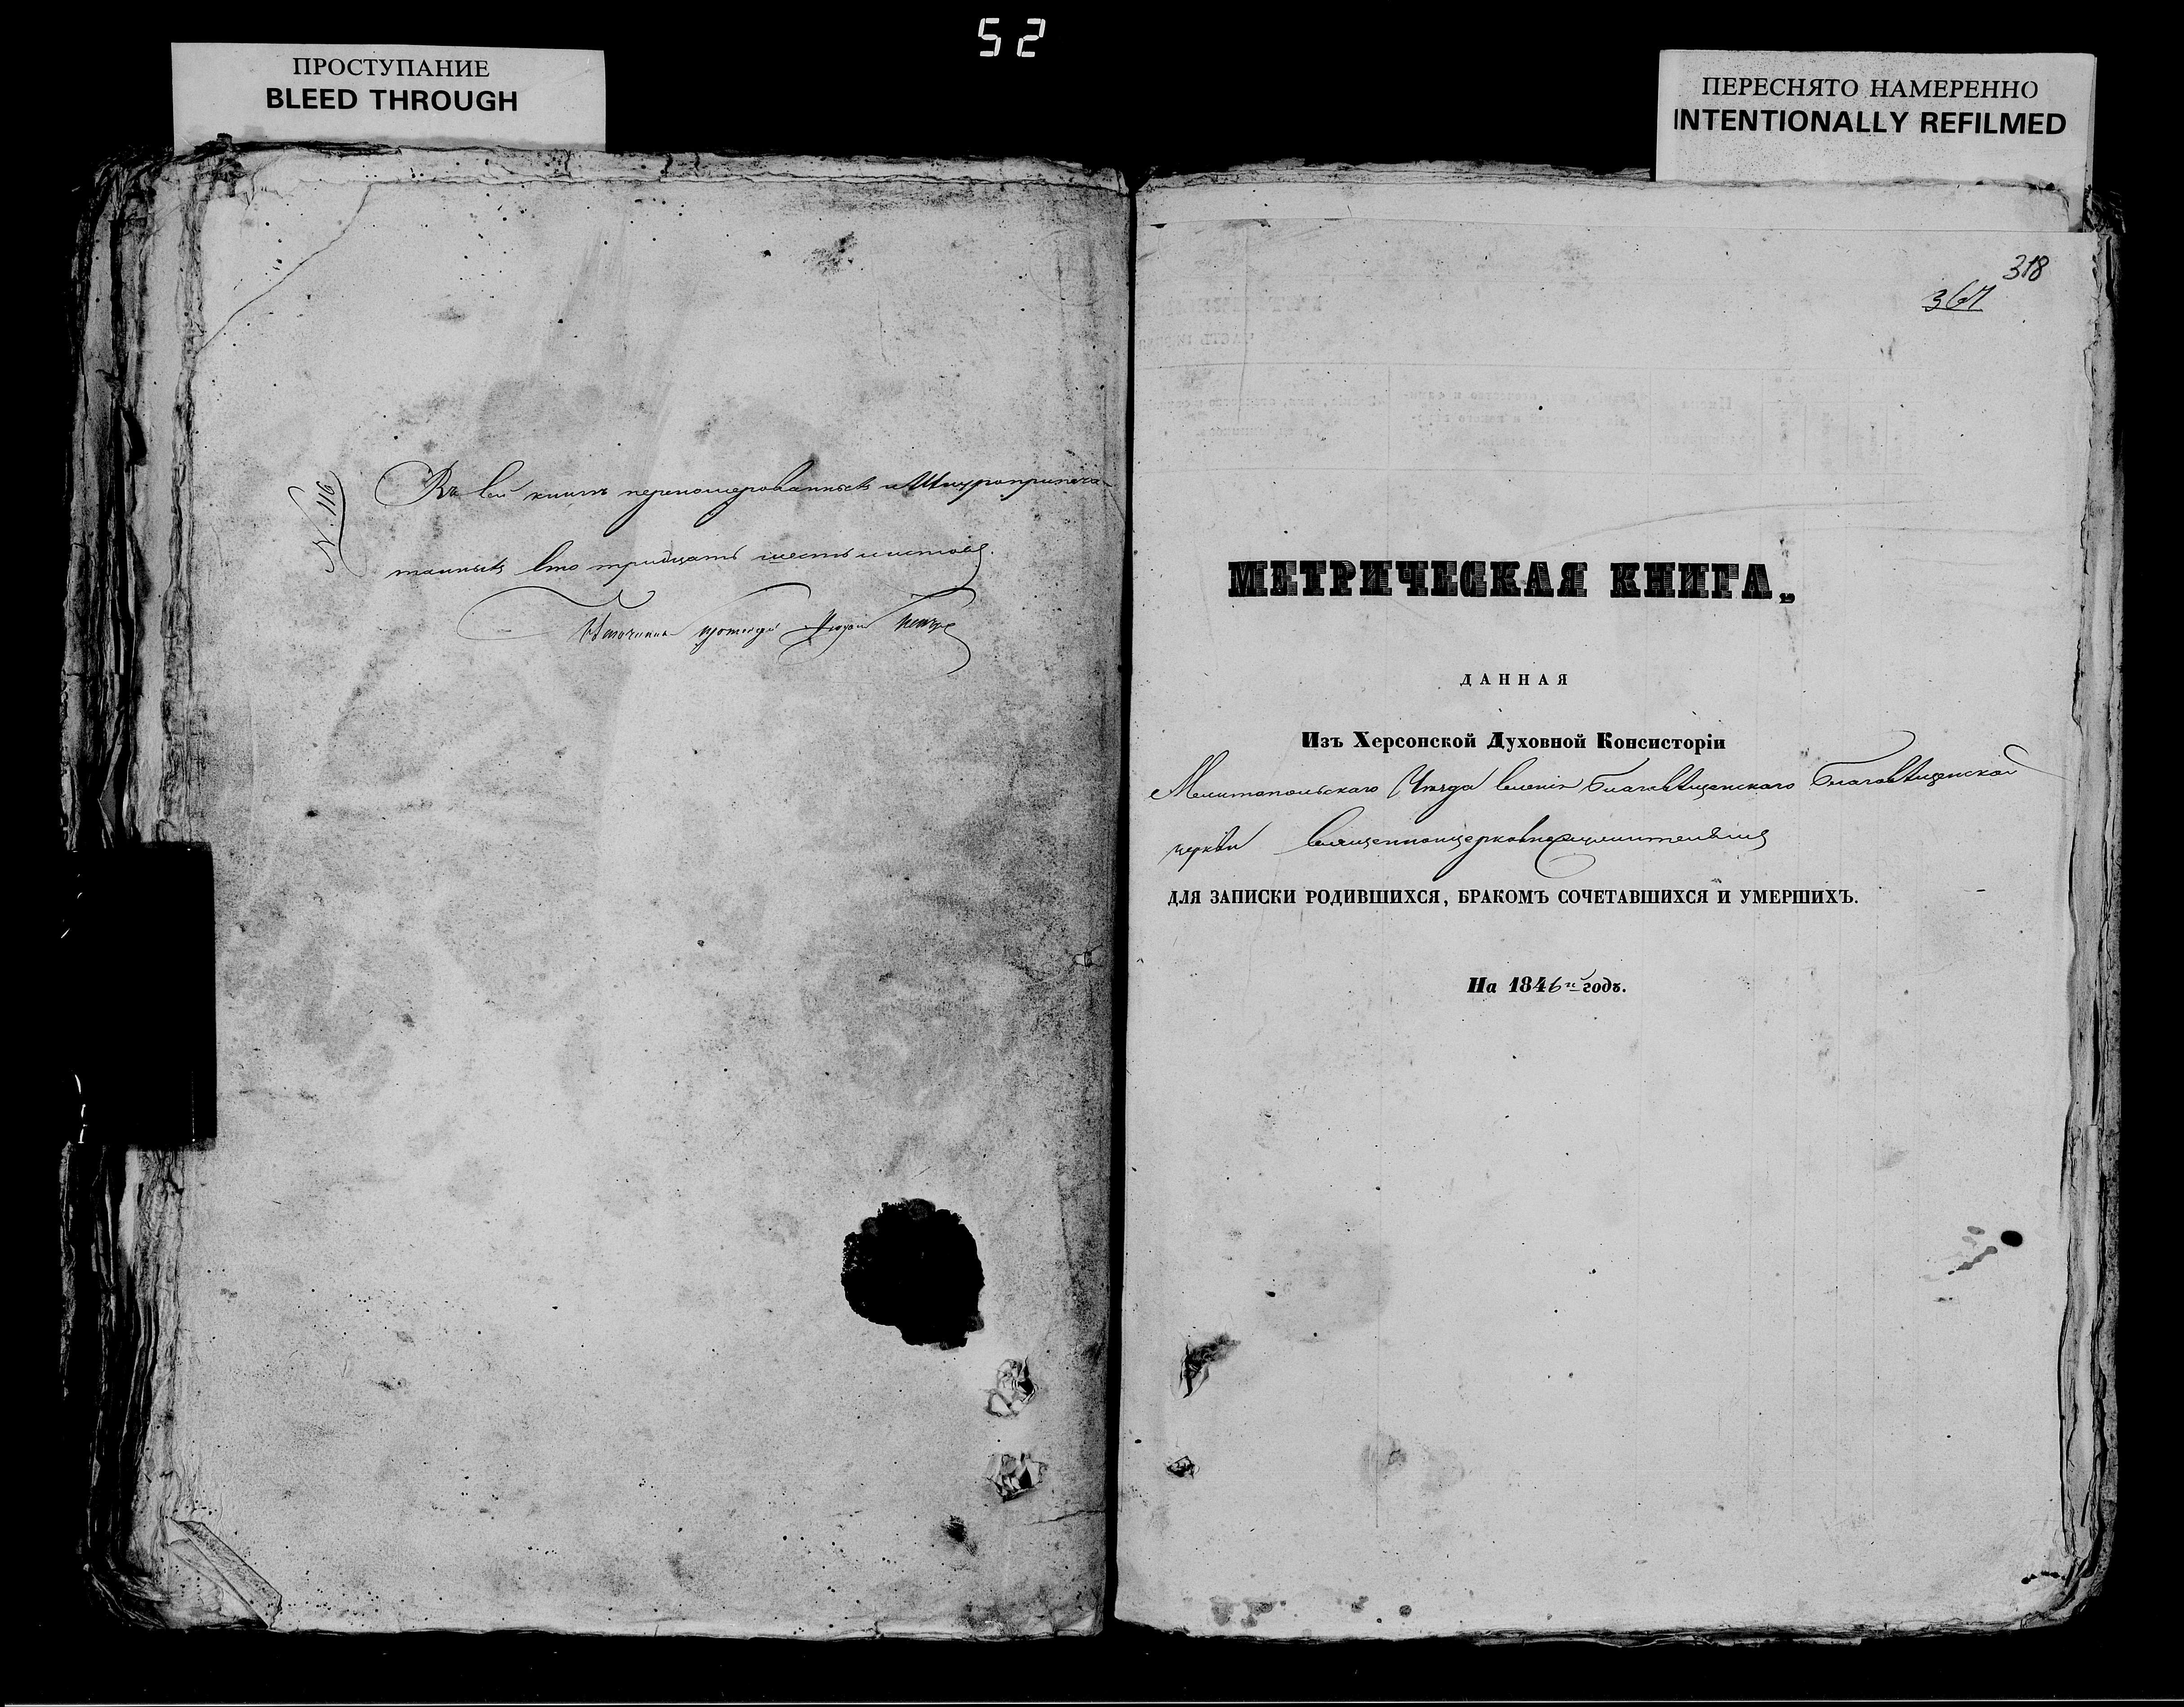 52
ПРОСТУПАНИЕ
BLEED THROUGH
ПЕРЕСНЯТО НАМЕРЕННО
INTENTIONALLY REFILMED
N. 116
Въ сей книгѣ переномерованныхъ и Шнуроприпеча-
танныхъ сто тридцать шесть листовъ.
318
367
МЕТРИЧЕСКАЯ КНИГА,
ДАННАЯ
Изъ Херсонской Духовной Консисторіи
Мелитопольскаго Уѣзда селенія Благовѣщенскаго Благовѣщенской
церкви священноцерковнослужителямъ
ДЛЯ ЗАПИСКИ РОДИВШИХСЯ, БРАКОМЪ СОЧЕТАВШИХСЯ И УМЕРШИХЪ.
На 1846й годъ.